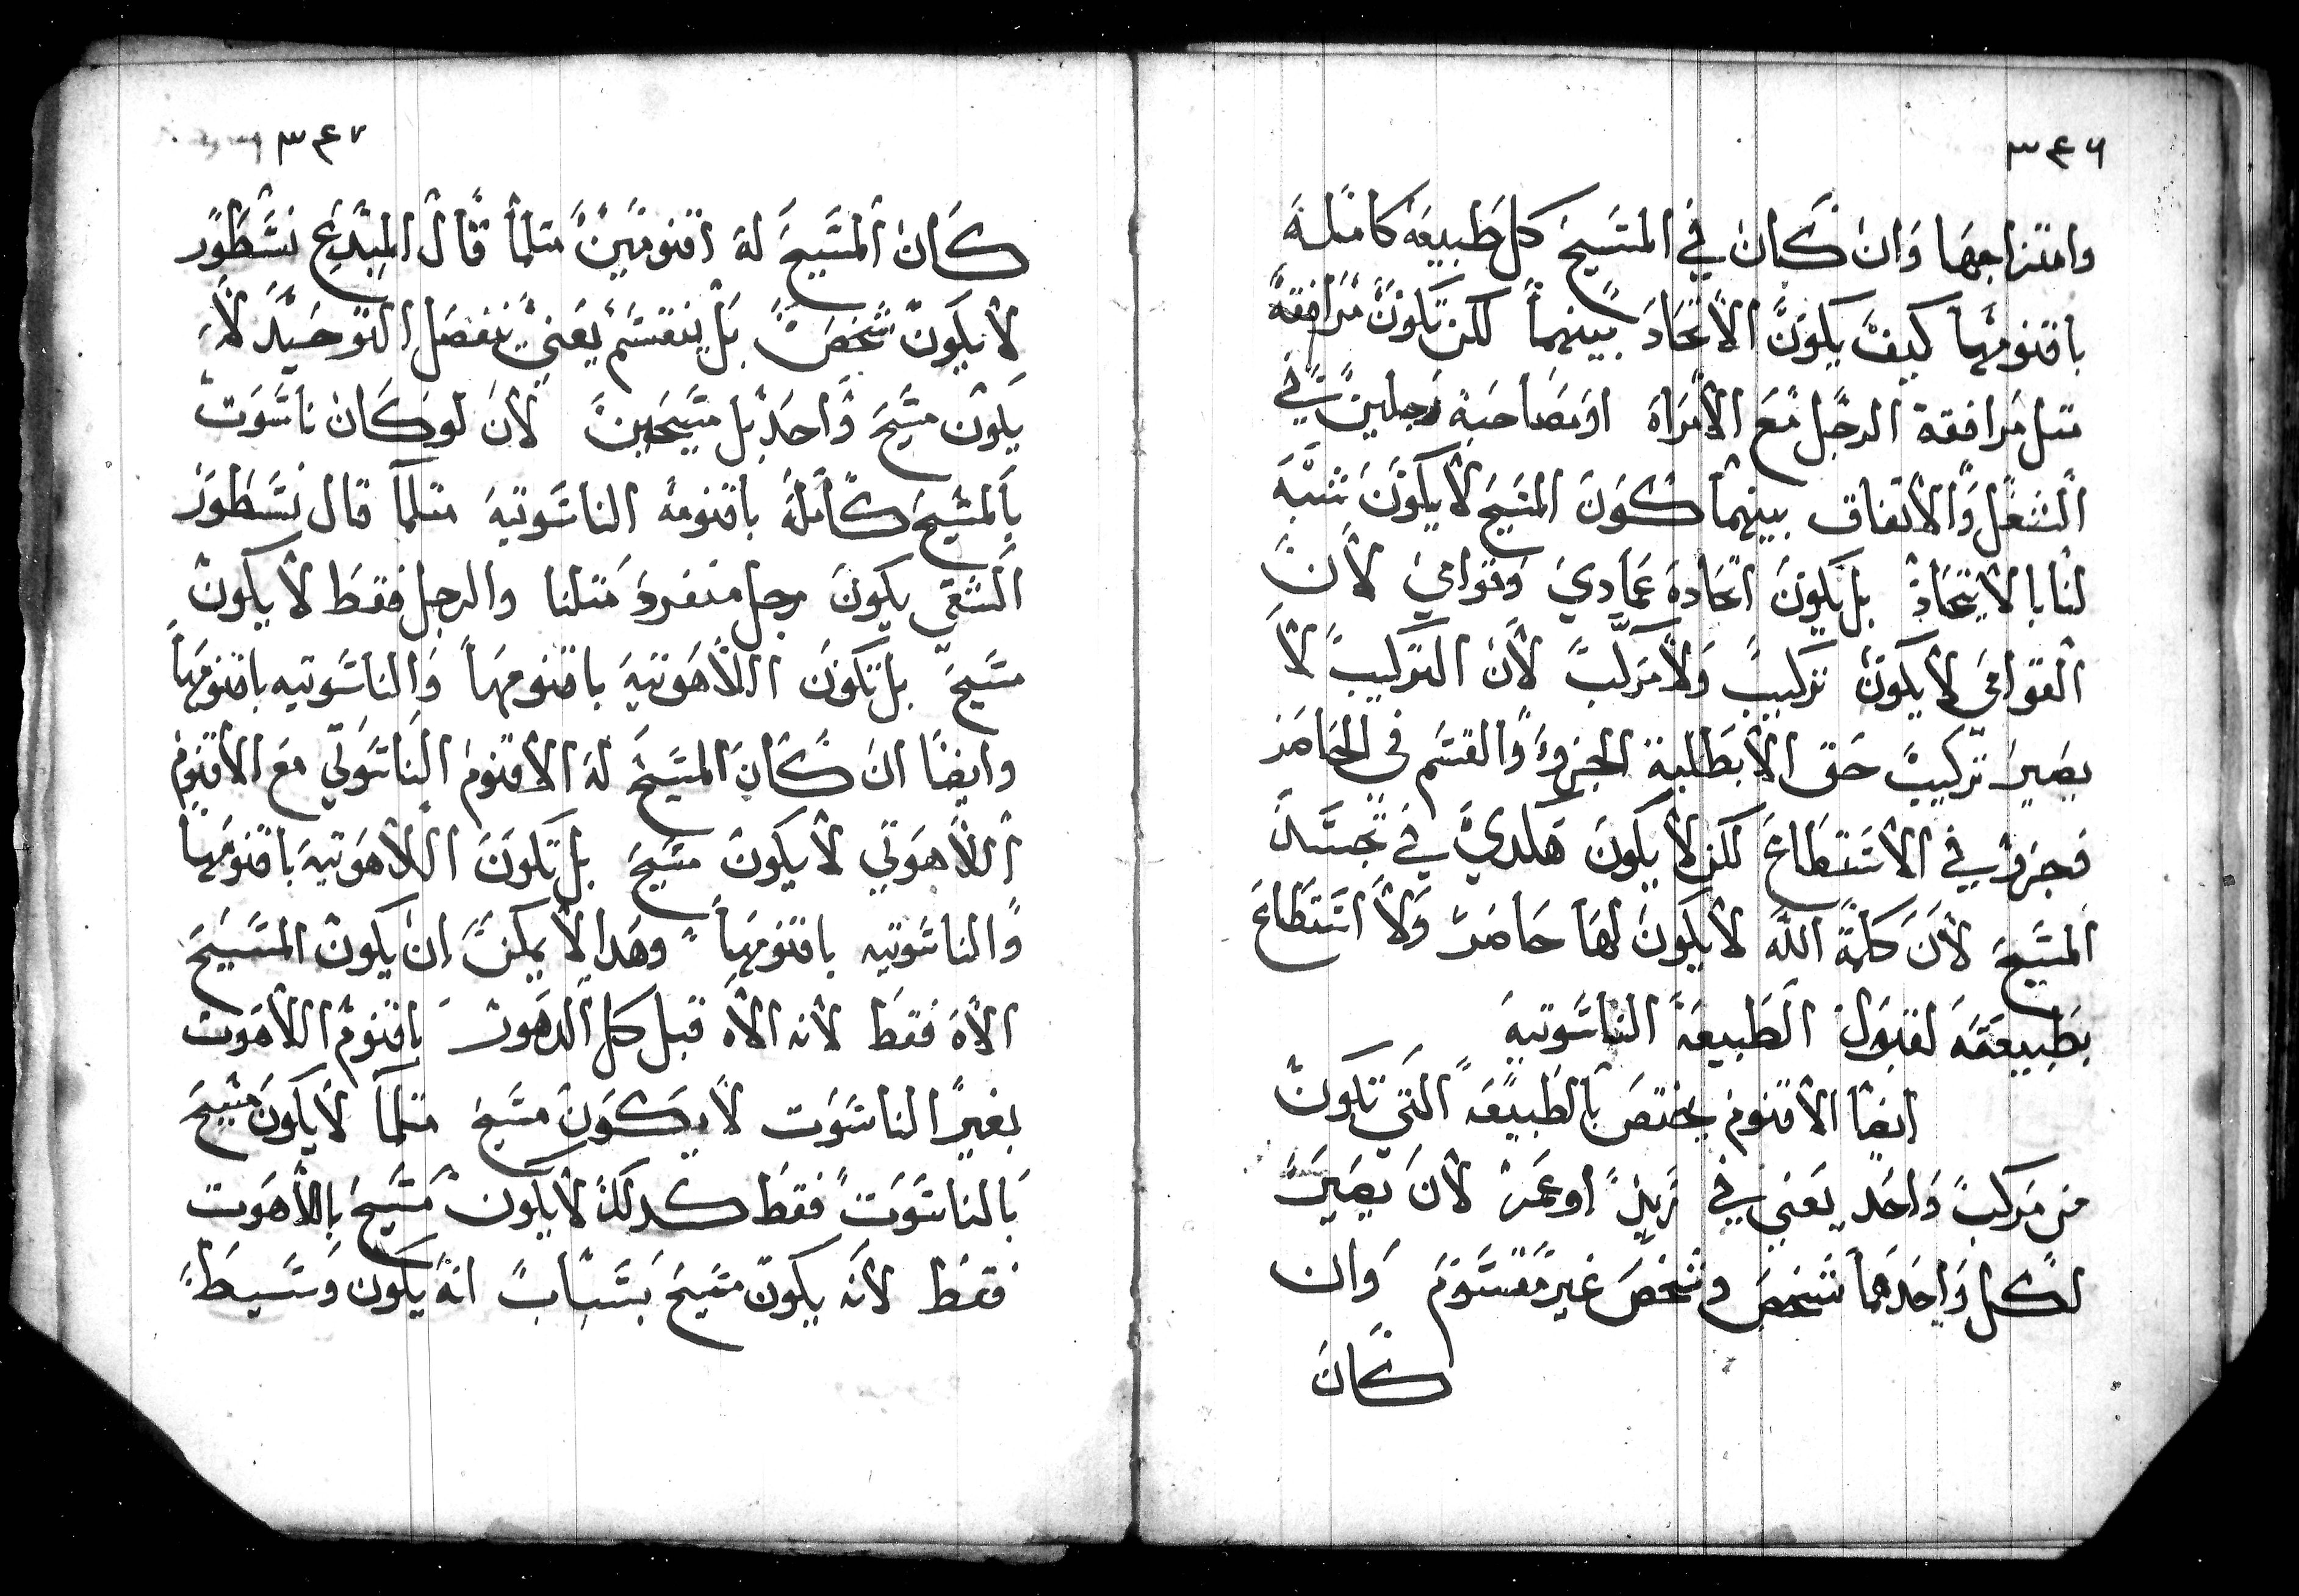 ٣٤٦
وامتزاجها وان كان في المسيح كل طبيعه كامله
باقنومها كيف يكون الاتحاد بينهما لكن تكون مرافقة
متل مرافقة الرجل مع الامراه او مصاحبة رجلين في
الشغل والاتفاق بينهما كون المسيح لا يكون شبه
لنا بالاتحاد بل يكون اتحاده عمادي وقوامي لان
القوامي لا يكون تركيب ولا مركب لان التركيب لا
يصير تركيب حق الا بطلبة الجزو والقسم في الحاضر
فجزو في الاستطاع لكن لا يكون هكدي في تجسد
المسيح لان كلمة الله لا يكون لها حاضر ولا استطاع
بطبيعته لقبول الطبيعة الناسوتيه
ايضا الاقنوم يختص بالطبيعه التي تكون
من مركب واحد يعني في زيد او عمر لان يصير
لكل واحدهما شخص وشخص غير مقسوم وان
كان
٣٤٧
كان المسيح له اقنومين متلما قال المبدع نسطور
لا يكون شخص بل ينقسم يعني ينفصل التوحيد لا
يكون مسيح واحد بل مسيحين لان لو كان ناسوت
بالمسيح كامله باقنومه الناسوتيه متلما قال نسطور
الشقي يكون رجل منفرد متلنا والرجل فقط لا يكون
مسيح بل تكون اللاهوتيه باقنومها والناسوتيه باقنومها
وايضا ان كان المسيح له الاقنوم الناسوتي مع الاقنوم
اللاهوتي لا يكون مسيح بل تكون اللاهوتيه باقنومها
والناسوتيه باقنومها وهدا لا يمكن ان يكون المسيح
الاه فقط لانه الاه قبل كل الدهور باقنوم اللاهوت
بغير الناسوت لا يكون مسيح متلما لا يكون مسيح
بالناسوت فقط كدلك لا يكون مسيح باللاهوت
فقط لانه يكون مسيح بسباب انه يكون وسيط